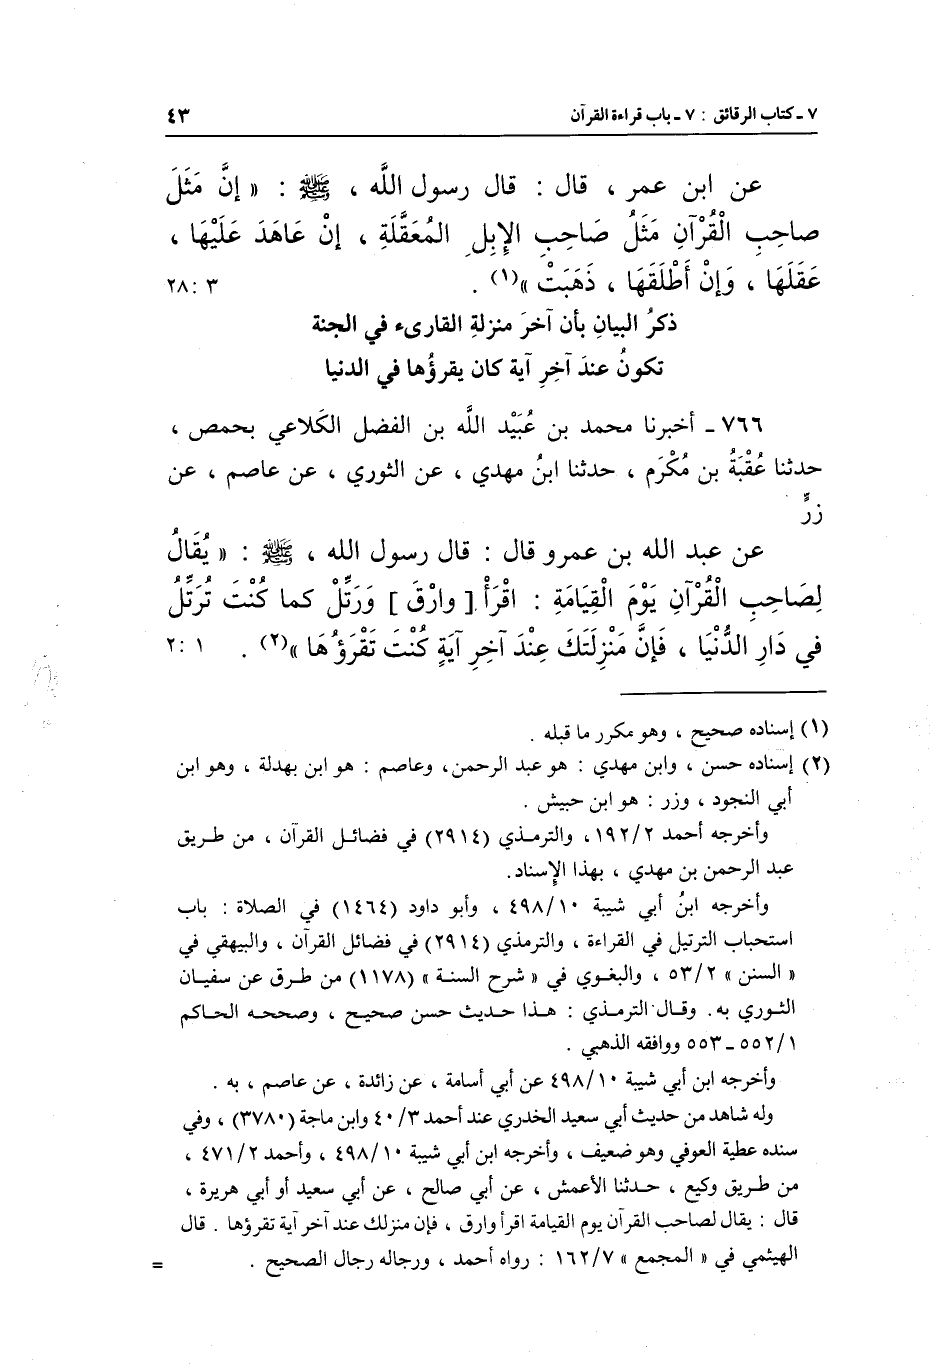 ٧ ـ كتاب الرقائق : ٧ ـ باب قراءة القرآن ٤٣
عن ابن عمر ، قال : قال رسول اللَّه ، ﷺ : « إنَّ مَثَلَ
صاحِبِ الْقُرْآنِ مَثَلُ صَاحِبِ الإِبِلِ المُعَقَّلَةِ ، إنْ عَاهَدَ عَلَيْهَا ،
عَقَلَهَا ، وَإنْ أَطْلَقَهَا ، ذَهَبَتْ »(١) . ٣ :٢٨
ذكرُ البيانِ بأن آخرَ منزلةِ القارىء في الجنة
تكونُ عندَ آخِرِ آية كان يقرؤُها في الدنيا
٧٦٦ ـ أخبرنا محمد بن عُبَيْد اللَّه بن الفضل الكَلاعي بحمص ،
حدثنا عُقْبَةُ بن مُكْرَم ، حدثنا ابنُ مهدي ، عن الثوري ، عن عاصم ، عن
زرٍّ
عن عبد الله بن عمرو قال : قال رسول الله ، ﷺ : « يُقَالُ
لِصَاحِبِ الْقُرْآنِ يَوْمَ الْقِيَامَةِ : اقْرَأْ [ وارْقَ ] وَرَتِّلْ كما كُنْتَ تُرَتِّلُ
في دَارِ الدُّنْيَا ، فَإنَّ مَنْزِلَتَكَ عِنْدَ آخِرِ آيَةٍ كُنْتَ تَقْرَؤُهَا »(٢) . ١ :٢
(١) إسناده صحيح ، وهو مكرر ما قبله .
(٢) إسناده حسن ، وابن مهدي : هو عبد الرحمن، وعاصم : هو ابن بهدلة ، وهو ابن
أبي النجود ، وزر : هو ابن حبيش .
وأخرجه أحمد ١٩٢/٢، والترمذي (٢٩١٤) في فضائل القرآن ، من طريق
عبد الرحمن بن مهدي ، بهذا الإسناد.
وأخرجه ابنُ أبي شيبة ٤٩٨/١٠ ، وأبو داود (١٤٦٤) في الصلاة : باب
استحباب الترتيل في القراءة ، والترمذي (٢٩١٤) في فضائل القرآن ، والبيهقي في
« السنن » ٥٣/٢ ، والبغوي في « شرح السنة » (١١٧٨) من طرق عن سفيان
الثوري به. وقال الترمذي : هذا حديث حسن صحيح ، وصححه الحاكم
٥٥٢/١ ـ ٥٥٣ ووافقه الذهبي .
وأخرجه ابن أبي شيبة ٤٩٨/١٠ عن أبي أسامة ، عن زائدة ، عن عاصم ، به .
وله شاهد من حديث أبي سعيد الخدري عند أحمد ٤٠/٣ وابن ماجة (٣٧٨٠) ، وفي
سنده عطية العوفي وهو ضعيف ، وأخرجه ابن أبي شيبة ٤٩٨/١٠ ، وأحمد ٤٧١/٢ ،
من طريق وكيع ، حدثنا الأعمش ، عن أبي صالح ، عن أبي سعيد أو أبي هريرة ،
قال : يقال لصاحب القرآن يوم القيامة اقرأ وارق ، فإن منزلك عند آخر آية تقرؤها . قال
الهيثمي في « المجمع » ١٦٢/٧ : رواه أحمد ، ورجاله رجال الصحيح . =